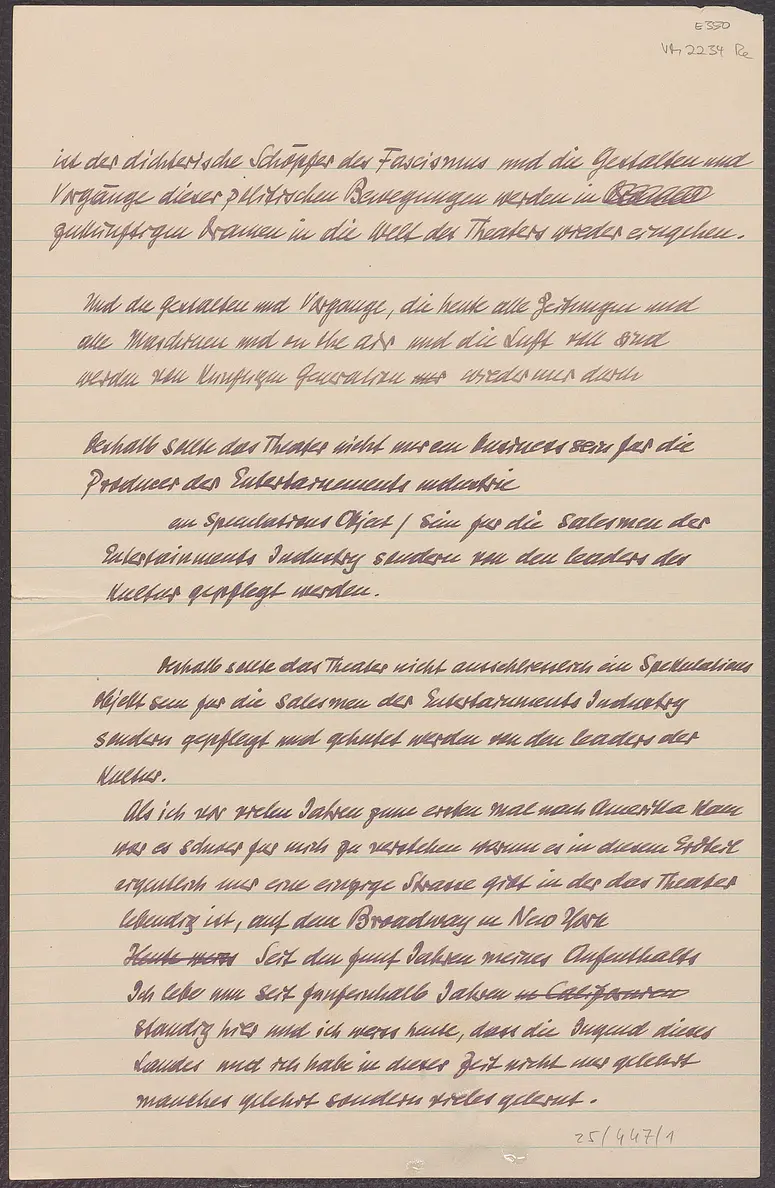 E350
VM 2234 Re
ist der dichterische Schöpfer des Fascismus und die Gestalten und
Vorgänge dieser politischen Bewegungen werden in
zukünftigen Dramen in die Welt des Theaters wieder eingehen.
Und die Gestalten und Vorgange, die heute alle Zeitungen und
alle Maschinen und on the air und die Luft voll sind
werden von kunftigen Generation nur wieder nur durch
Deshalb sollte das Theater nicht nur ein business sein fur die
Producer der Entertainements industrie
ein Speculations Object / sein fur die Salesmen der
Entertainments Industry sondern von den leaders des
Kultur gepflegt werden.
Deshalb sollte das Theater nicht ausschliesslich ein Spekulations
Objekt sein fur die Salesmen der Entertainments Industry
sondern gepflegt und gehutet werden von den leaders der
Kultur.
Als ich vor vielen Jahren zum ersten Mal nach Amerika kam
war es schwer fur mich zu verstehen warum es in diesem Erdteil
eigentlich nur eine einzige Strasse gibt in der das Theater
lebendig ist, auf dem Broadway in New York
Heute weiss Seit den funf Jahren meines Aufenthalts
Ich lebe nun seit funfeinhalb Jahren in Californien
standig hier und ich weiss heute, dass die Jugend dieses
Landes und ich habe in dieser Zeit nicht nur gelehrt
manches gelehrt sondern vieles gelernt.
25/447/1